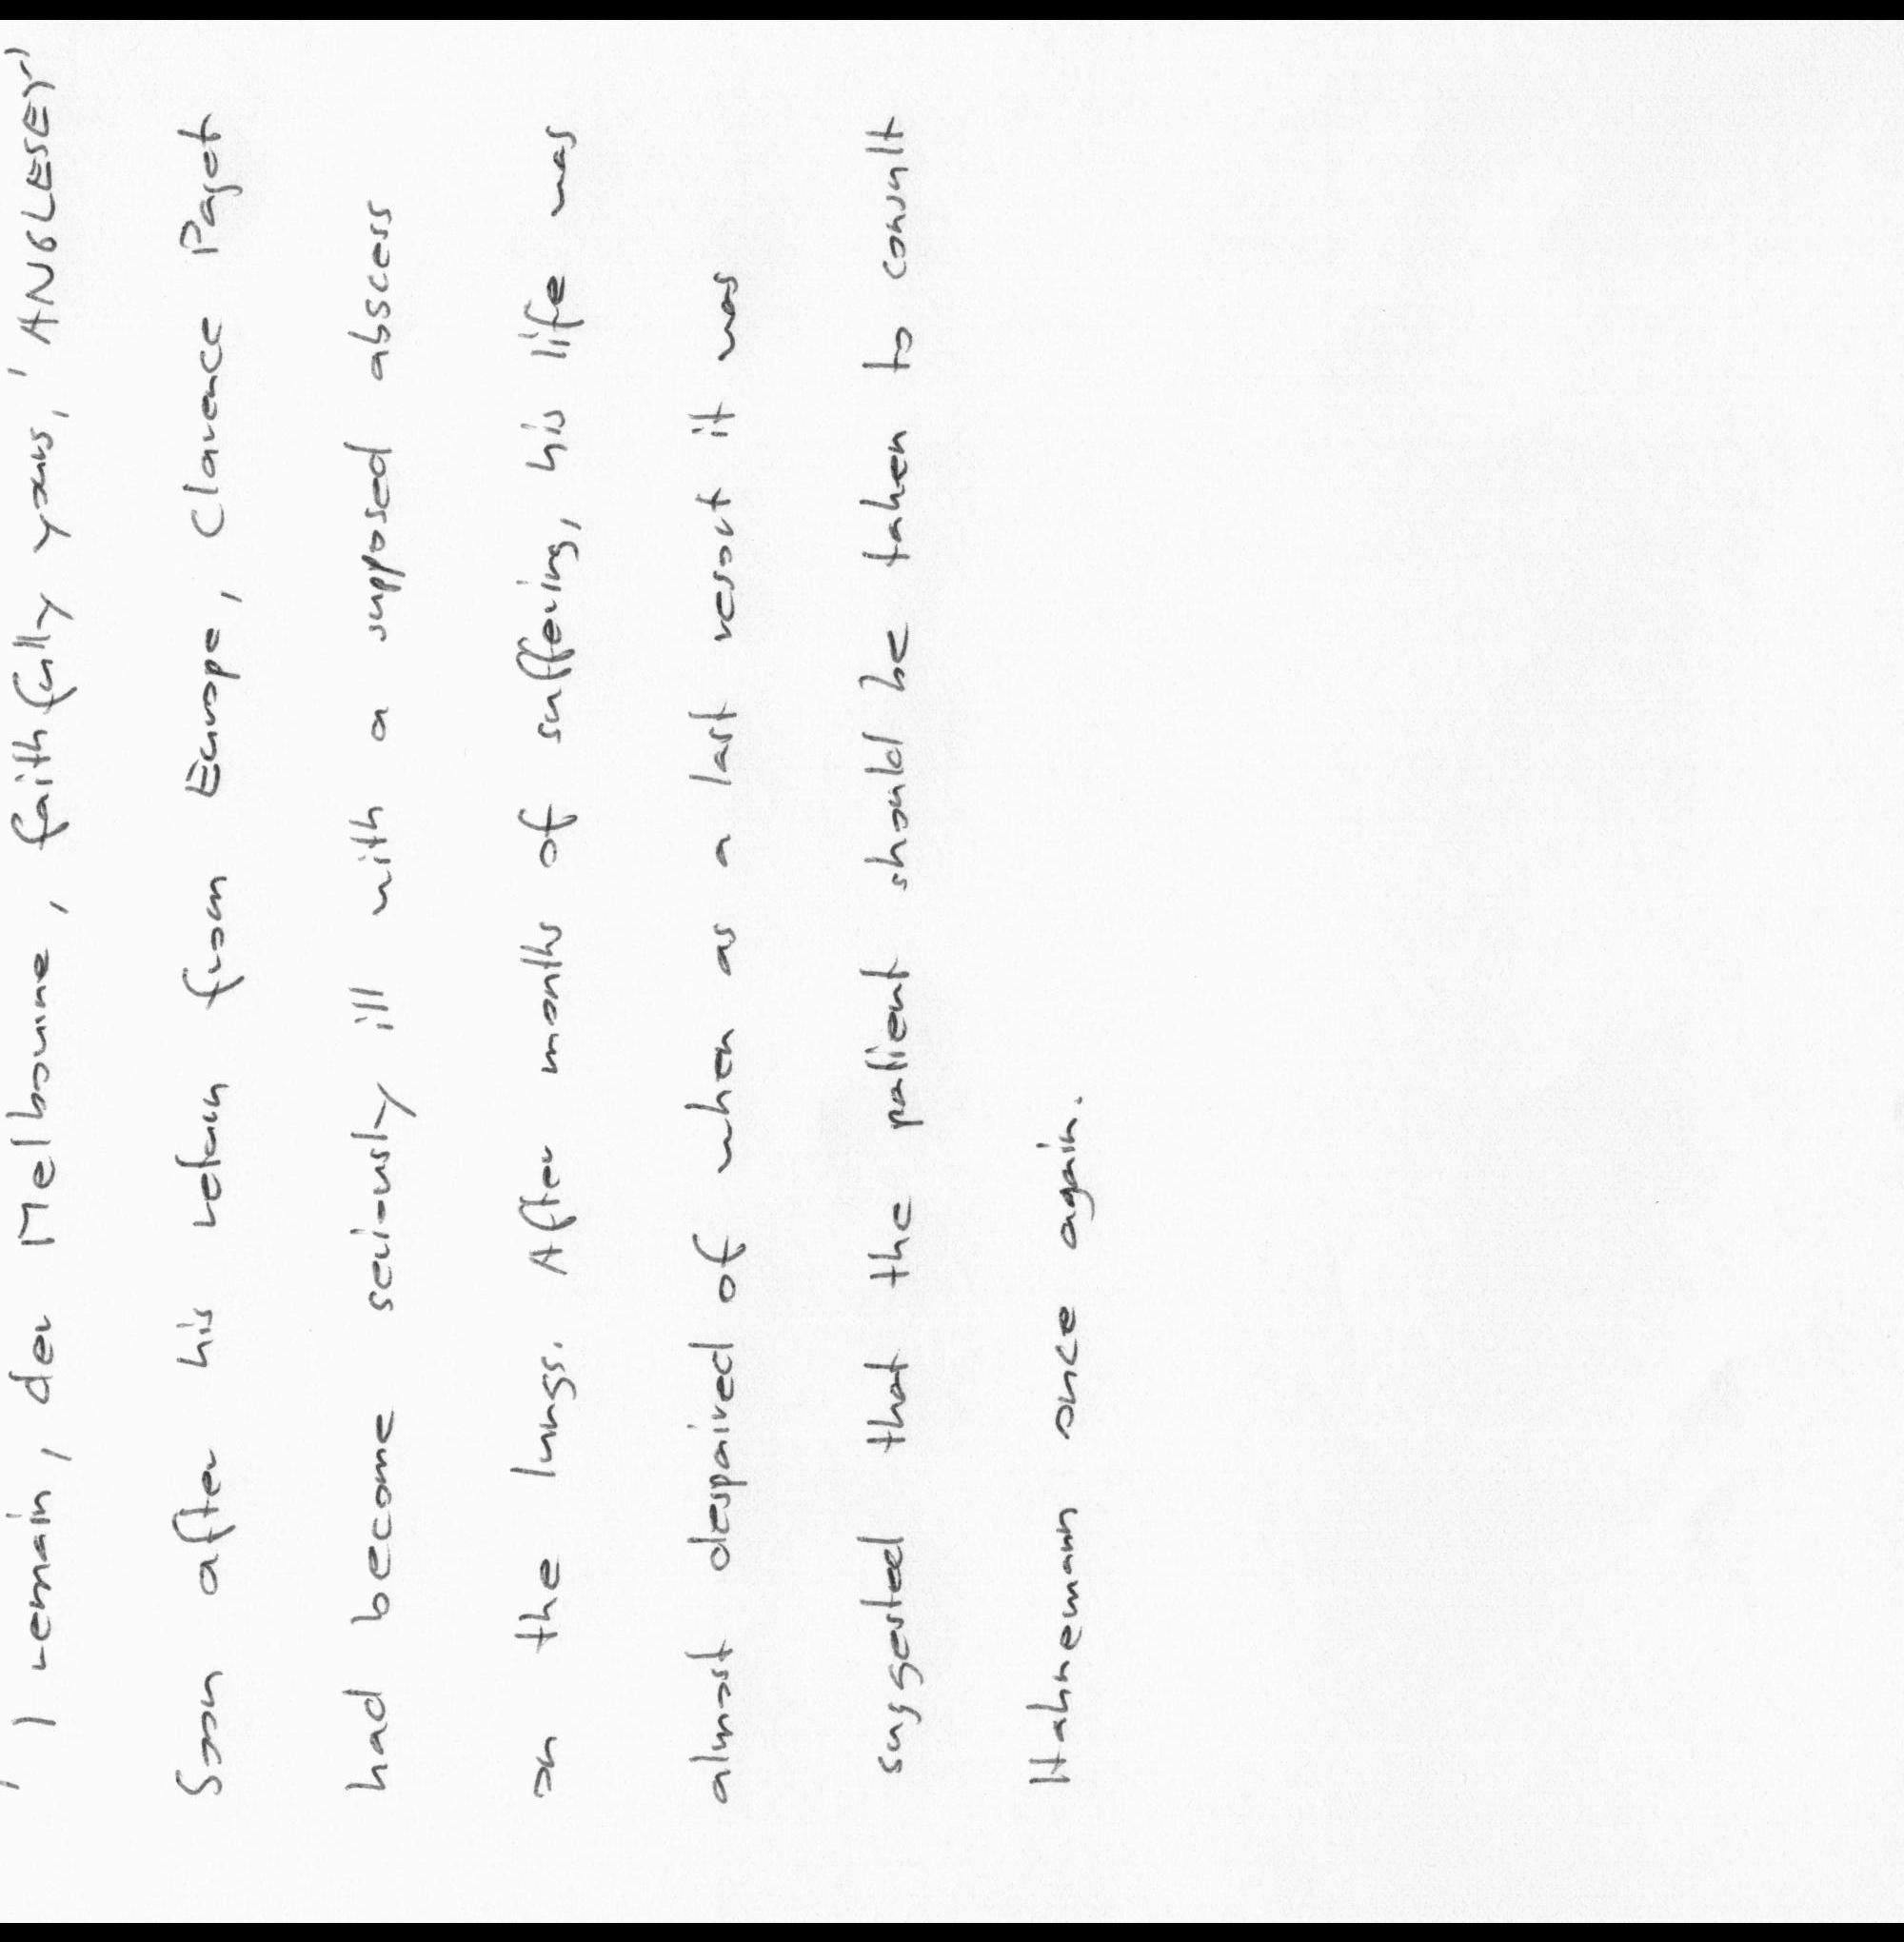 'I remain, der Melbourne, faithfully yours,' 'ANGLESEY'
Soon after his return from Europe, Clarence Paget
had become seriously ill with a supposed abscess
on the lungs. After months of suffering, his life was
almost despaired of when as a last resort it was
suggested that the patient should be taken to consult
Hahnemann once again.